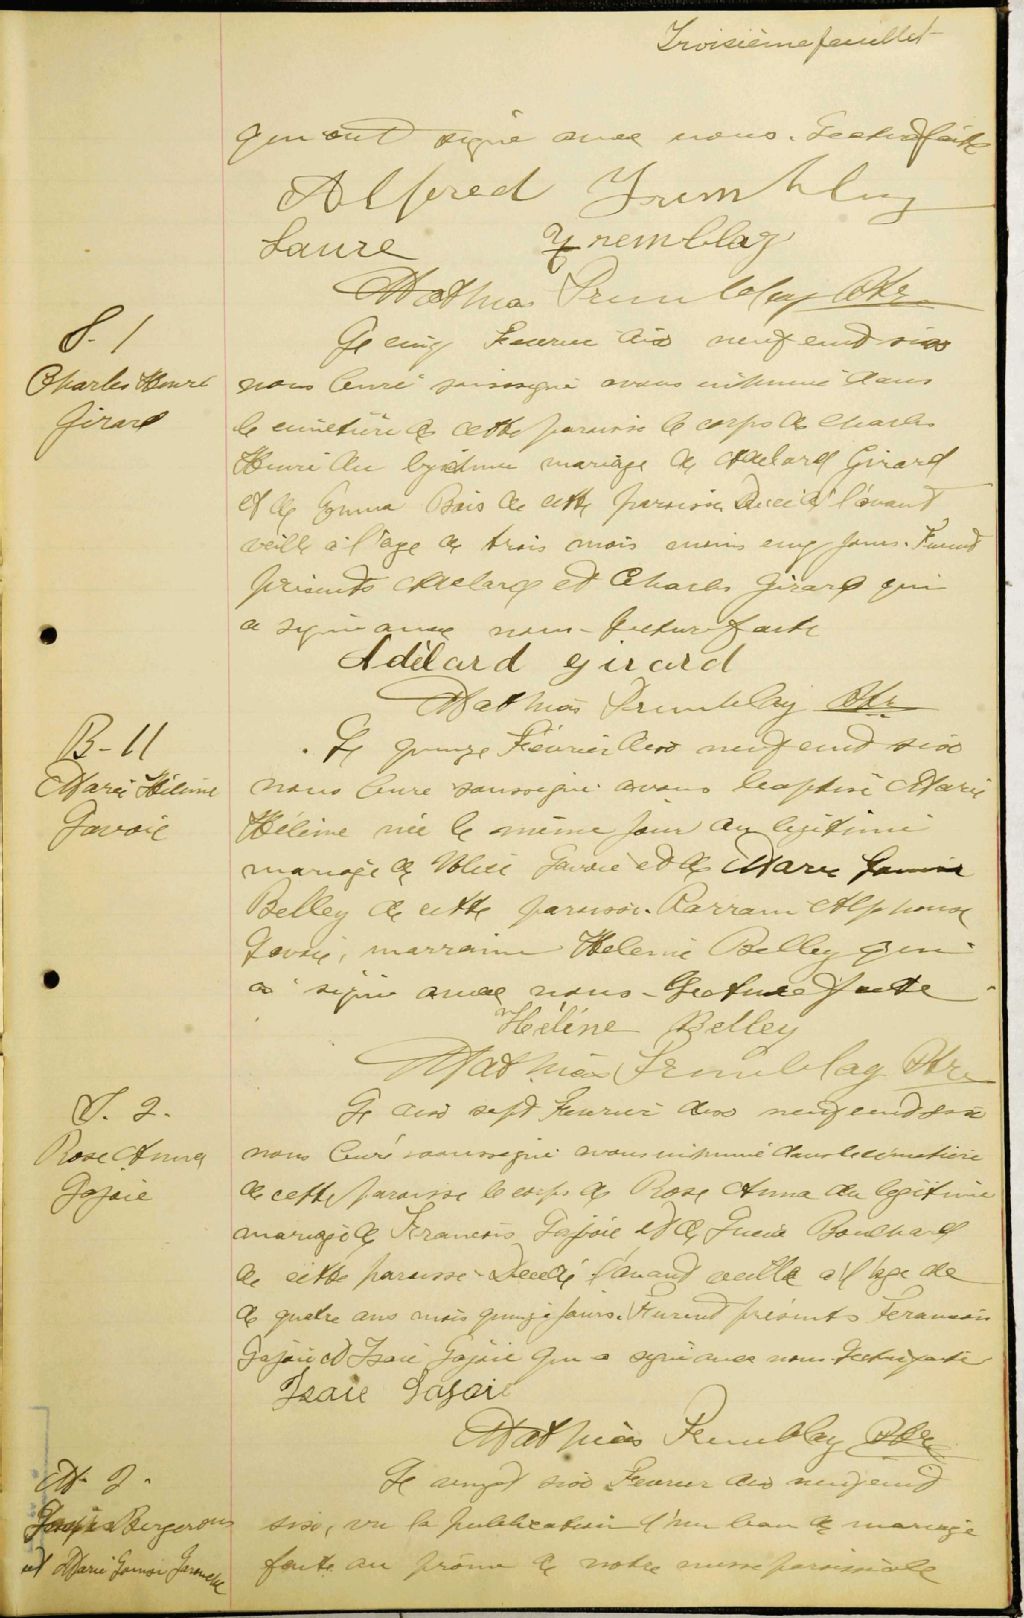 Troisième feuillet
qui ont signé avec nous. Lecture faite
Alfred Tremblay
Laure Tremblay
Mathias Tremblay Ptre
S. 1
Charles Henri
Girard
Le cinq Fevrier dix neuf cent six
nous Curé soussigné avons inhumé dans
le cimetière de cette paroisse le corps de Charles
Henri du légitime mariage de Adelard Girard
et de Emma Bois de cette paroisse Décédé l'avant
veille à l'age de trois mois moins cinq jours. Furent
présents Adelard et Charles Girard qui
a signé avec nous - Lecture faite
Adélard Girard
Mathias Tremblay Ptre
B - 11
Marie Hélène
Savoie
Le quinze Février dix neuf cent six
nous Curé soussigné avons baptisé Marie
Hélène née le même jour du légitime
mariage de Savoie et de Marie
Belley de cette paroisse. Parrain Alphonse
Savoie, marraine Helene Belley qui
a signé avec nous - Lecture faite
Hélène Belley
Mathias Tremblay Ptre
S. 2.
Rose Anna
Lajoie
Le dix sept Fevrier dix neuf cent six
nous Curé soussigné avons inhumé dans le cimetière
de cette paroisse le corps de Rose Anna du légitime
mariage de Francois Lajoie et de Bouchard
de cette paroisse - Décédé l'avant veille à l'age de
de quatre ans mois quinze jours. Furent présents Francois
Lajoie et Isaie Lajoie qui a signé avec nous Lecture faite
Isaie Lajoie
Mathias Tremblay Ptre
M. 2.
Bergeron
et Marie
Le vingt six Fevrier dix neuf cent
six, vu la publication d'un ban de mariage
faite au prône de notre messe paroissiale